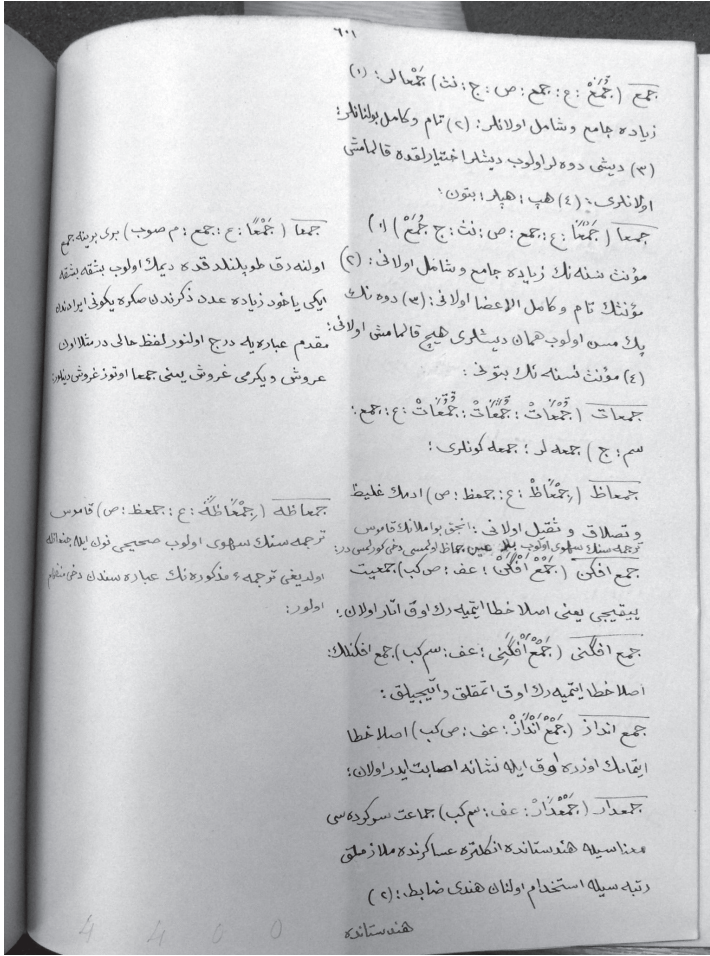 ٦٠١
جمع (جُمَعْ : ع : جمع : ص : ج : نث) جمعالر : (١)
زیاده جامع و شامل اولانلر : (٢) تام و كامل بولنانلر :
(٣) دیشی دوه لر اولوب دیشلر اختیارلقده قالمامشی
اولانلری : (٤) هپ ؛ هپلر ؛ بتون :
جمعا (جَمْعَا : ع : جمع : ص : نث : ج جُمَعْ) (١)
مؤنث نسنه نك زیاده جامع و شامل اولانی : (٢)
مؤنثك تام و كامل الاعضا اولانی : (٣) دوه نك
پك مسن اولوب همان دیشلری هیچ قالمامشی اولانی :
(٤) مؤنث نسنه نك بتونی :
جمعات (جُمْعَاتْ : جُمَعَاتْ : جُمُعَاتْ : ع : جمع :
سم : ج) جمعه لر ؛ جمعه كونلری :
جمعاظ (جِمْعَاظْ : ع : جمعظ : ص) ادمك غلیظ
و تصلاق و ثقیل اولانی : انجق بو املانك قاموس
ترجمه سنك سهوی اولوب بلا عین جماظ اولمسی دخی كورلمس در :
جمع افكن (جَمْعْ اَفْكَنْ : عف : ص كب) جمعیت
ییقیجی یعنی اصلا خطا ایتمیه رك اوق آتار اولان :
جمع افكنی (جَمْعْ اَفْكَنِی : عف : سم كب) جمع افكنلك :
اصلا خطا ایتمیه رك اوق اتمقلق و آتیجیلق :
جمع انداز (جَمْعْ اَنْدَازْ : عف : ص كب) اصلا خطا
ایتمامك اوزره اوق ایله نشانه اصابت ایدر اولان :
جمعدار (جَمْعْدَارْ : عف : سم كب) جماعت سوكرده سی
معناسیله هندستانده انكلتره عساكرنده ملازملق
رتبه سیله استخدام اولنان هندی ضابط : (٢)
هندستانده
جمعا (جَمْعًا : ع : جمع : م صوب) بری برینه جمع
اولنه رق طوپلنلدقده دیمك اولوب بشقه بشقه
ایكی یاخود زیاده عدد ذكرندن صكره یكونی ایرادندن
مقدم عباره یه درج اولنور لفظ حالی در مثلا اون
غروش و یكرمی غروش یعنی جمعا اوتوز غروش دینلور :
جمعاظه (جِمْعَاظَه : ع : جمعظ : ص) قاموس
ترجمه سنك سهوی اولوب صحیحی نون ایله جنعاظه
اولدیغی ترجمهٔ مذكوره نك عباره سندن دخی منفهم
اولور :
4 4 0 0